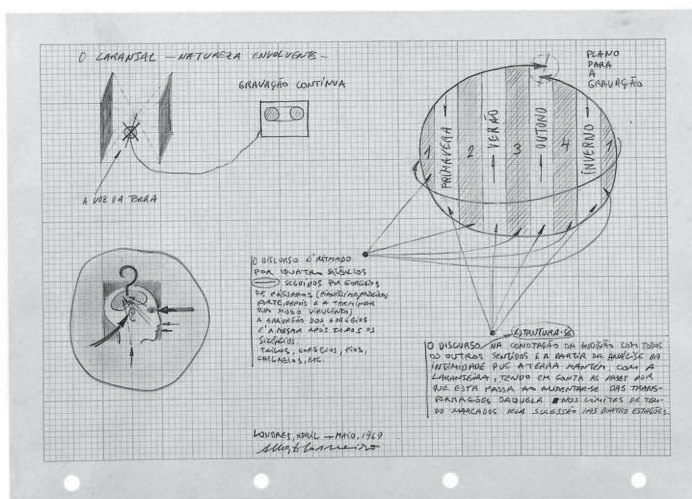 O LARANJAL — NATUREZA ENVOLVENTE —
GRAVAÇÃO CONTÍNUA
A VOZ DA TERRA
PLANO
PARA
A
GRAVAÇÃO
1
PRIMAVERA
2
VERÃO
3
OUTONO
4
INVERNO
1
?
O DISCURSO É RITMADO
POR QUATRO SILÊNCIOS
SEGUIDOS POR GORGEIOS
DE PÁSSAROS
FORTE, DEPOIS E A TERMINAR
DUM MODO VIRULENTO)
A GRAVAÇÃO DOS GORGEIOS
É A MESMA APÓS TODOS OS
SILÊNCIOS.
TRILOS, GORGEIOS, PIOS,
CHILREIOS, ETC.
ESTRUTURA-SE
O DISCURSO, NA CONOTAÇÃO DA AUDIÇÃO COM TODOS
OS OUTROS SENTIDOS E A PARTIR DA ANÁLISE DA
INTIMIDADE QUE A TERRA MANTEM COM A
LARANJEIRA, TENDO EM CONTA AS FASES POR
QUE ESTA PASSA AO ALIMENTAR-SE DAS TRANS-
FORMAÇÕES DAQUELA NOS LIMITES DE TEM-
PO MARCADOS PELA SUCESSÃO DAS QUATRO ESTAÇÕES.
LONDRES, ABRIL — MAIO, 1969
Alberto Carneiro